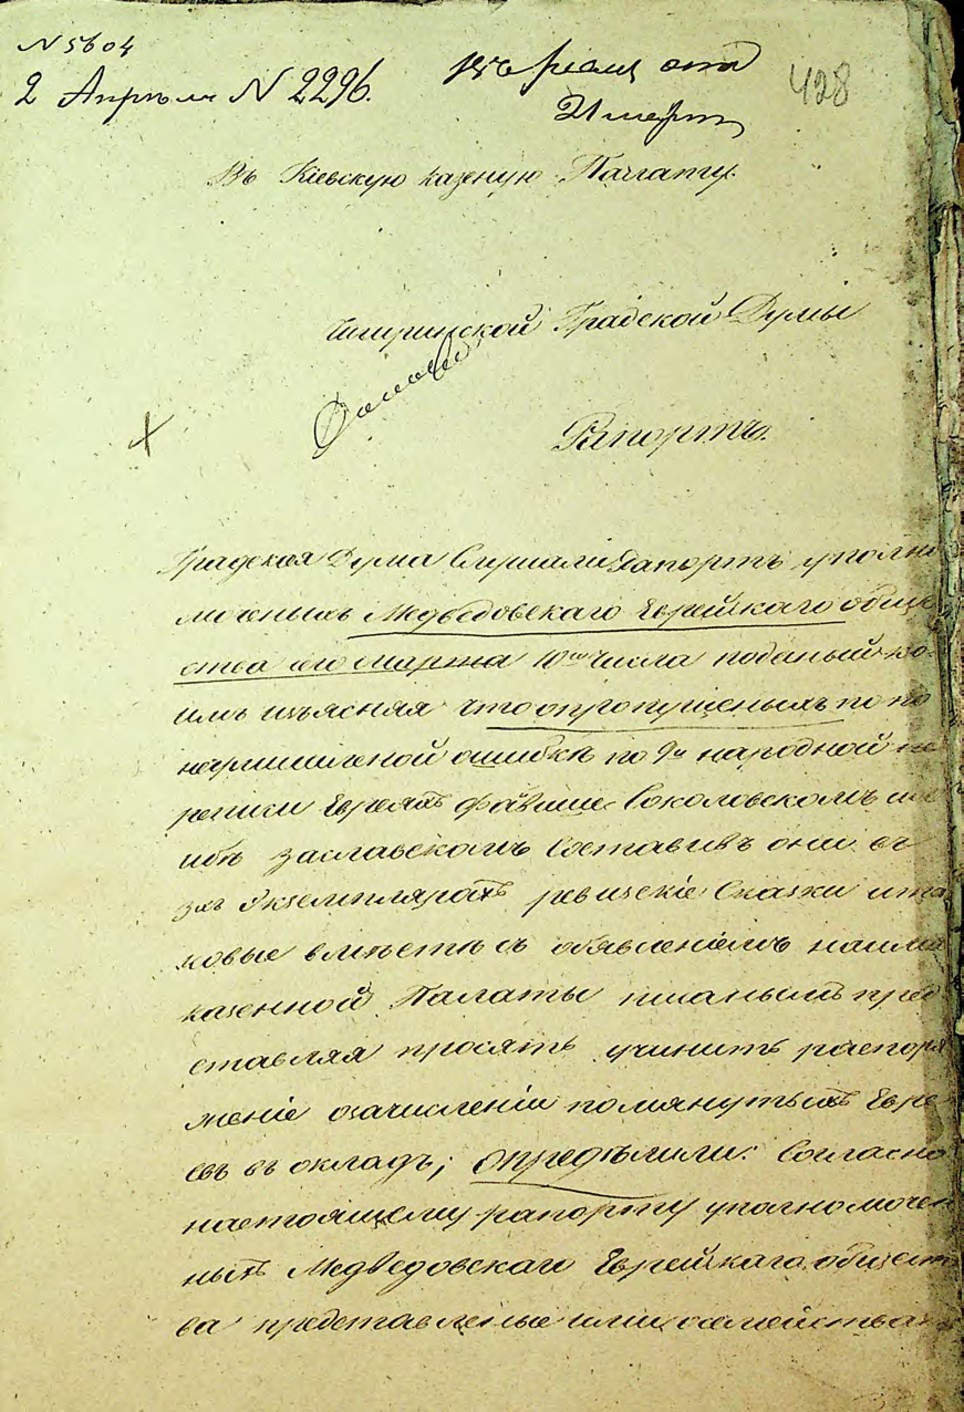 N 5604
2 Апрѣля N 2296.
428
21 марта
Въ Кіевскую казеную Палату.
Чигиринской Градской Думы
Рапортъ.
Градская Дума Слушали Рапортъ уполно
моченыхъ Медведовскаго Еврейскаго общес
ства сего марта 10го числа поданый ко
имъ изъясняя что опропущеныхъ по по
ошибкѣ по 9й народной пе
реписи Евреяхъ Соколовскомъ и
Заславскомъ Составивъ они въ
Экземплярахъ ревизскіе Сказки и та
ковые вмѣстѣ съ объявленіемъ наимя
казенной Палаты писанымъ пред
ставляя просятъ учинить распоря
женіе озачисленіи помянутыхъ Евре
евъ въ окладъ; опредѣлили: Согласно
настоящему рапорту уполномочен
ныхъ Медведовскаго Еврейскаго общест
ва представленые ими осемействахъ